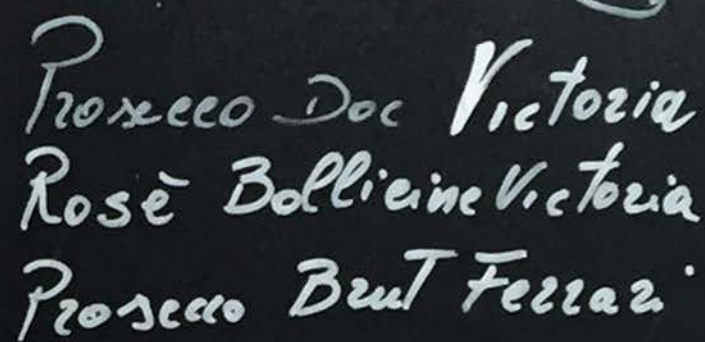 Prosecco Doc Victoria
Rosè Bollicine Victoria
Prosecco Brut Ferrari